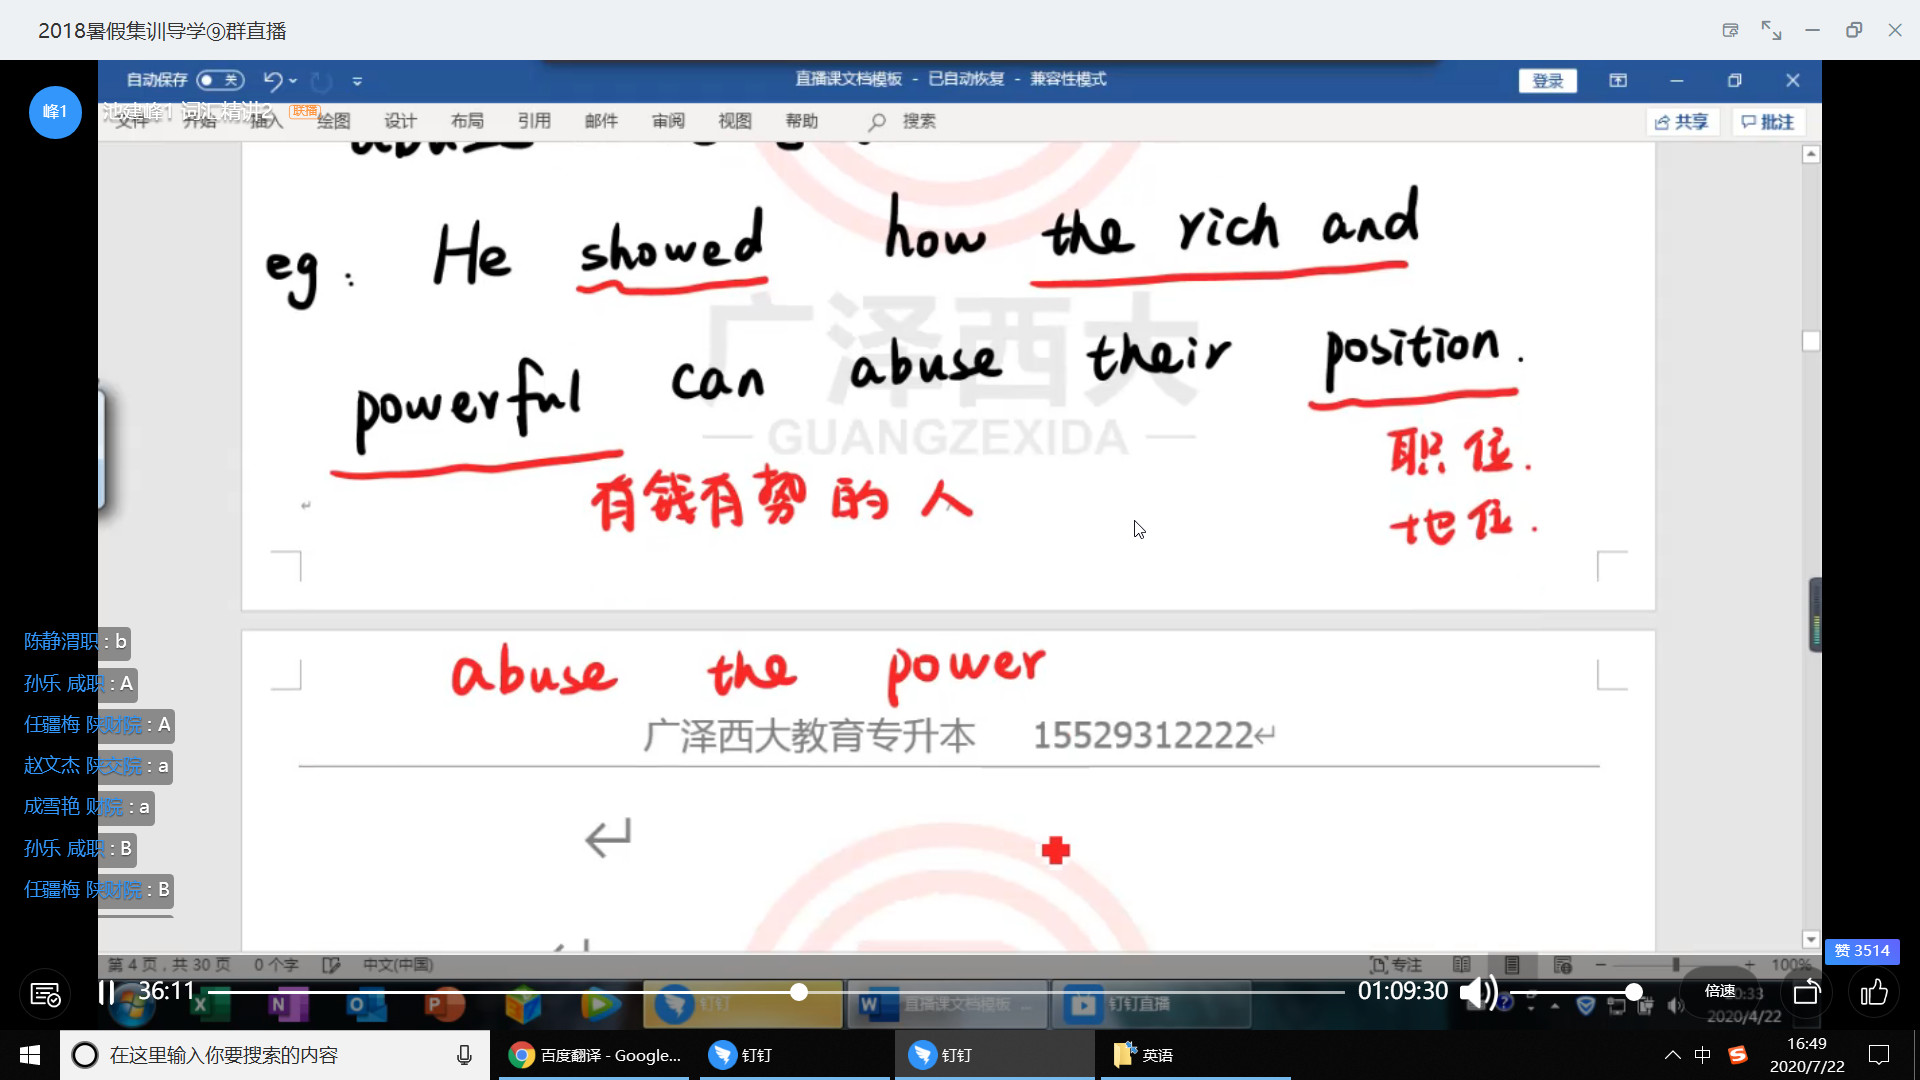 2018暑假集训导学⑨群直播
自动保存 关
直播课文档模板 - 已自动恢复 - 兼容性模式
登录
峰1
池建峰1 词汇精讲2 联播
文件 开始 插入 绘图 设计 布局 引用 邮件 审阅 视图 帮助 搜索
共享 批注
eg: He showed how the rich and
powerful can abuse their position.
广泽西大
GUANGZEXIDA
有钱有势的人
职位.
地位.
abuse the power
广泽西大教育专升本 15529312222
陈静渭职 : b
孙乐 咸职 : A
任疆梅 陕财院 : A
赵文杰 陕交院 : a
成雪艳 财院 : a
孙乐 咸职 : B
任疆梅 陕财院 : B
第 4 页，共 30 页 0 个字 中文(中国)
专注 100%
赞 3514
36:11
钉钉
直播课文档模板 - ...
钉钉直播
01:09:30
倍速
2020/4/22
在这里输入你要搜索的内容
百度翻译 - Google...
钉钉
钉钉
英语
中
16:49
2020/7/22